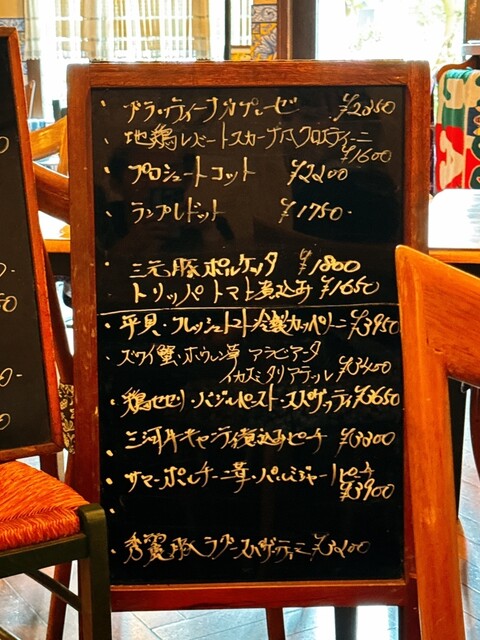 ・ブラッティーナカプレーゼ ¥2250
・地鶏レバートスカーナ風クロスティーニ
¥1600
・プロシュートコット ¥2200
・ランプレドット ¥1750-
・三元豚ポルケッタ ¥1800
トリッパトマト煮込み ¥1650
・平貝・フレッシュトマト冷製カッペリーニ ¥3950
・ズワイ蟹・ホウレン草 アラビアータ
イカスミタリアテッレ ¥3400
・鶏セセリ・バジルペースト・スパゲッティ ¥3650
・三河牛キャンティ煮込みピーチ ¥3200
・サマーポルチーニ茸・パルミジャーノピーチ
¥3900
・
・秀麗豚ラグースパゲッティーニ ¥3200